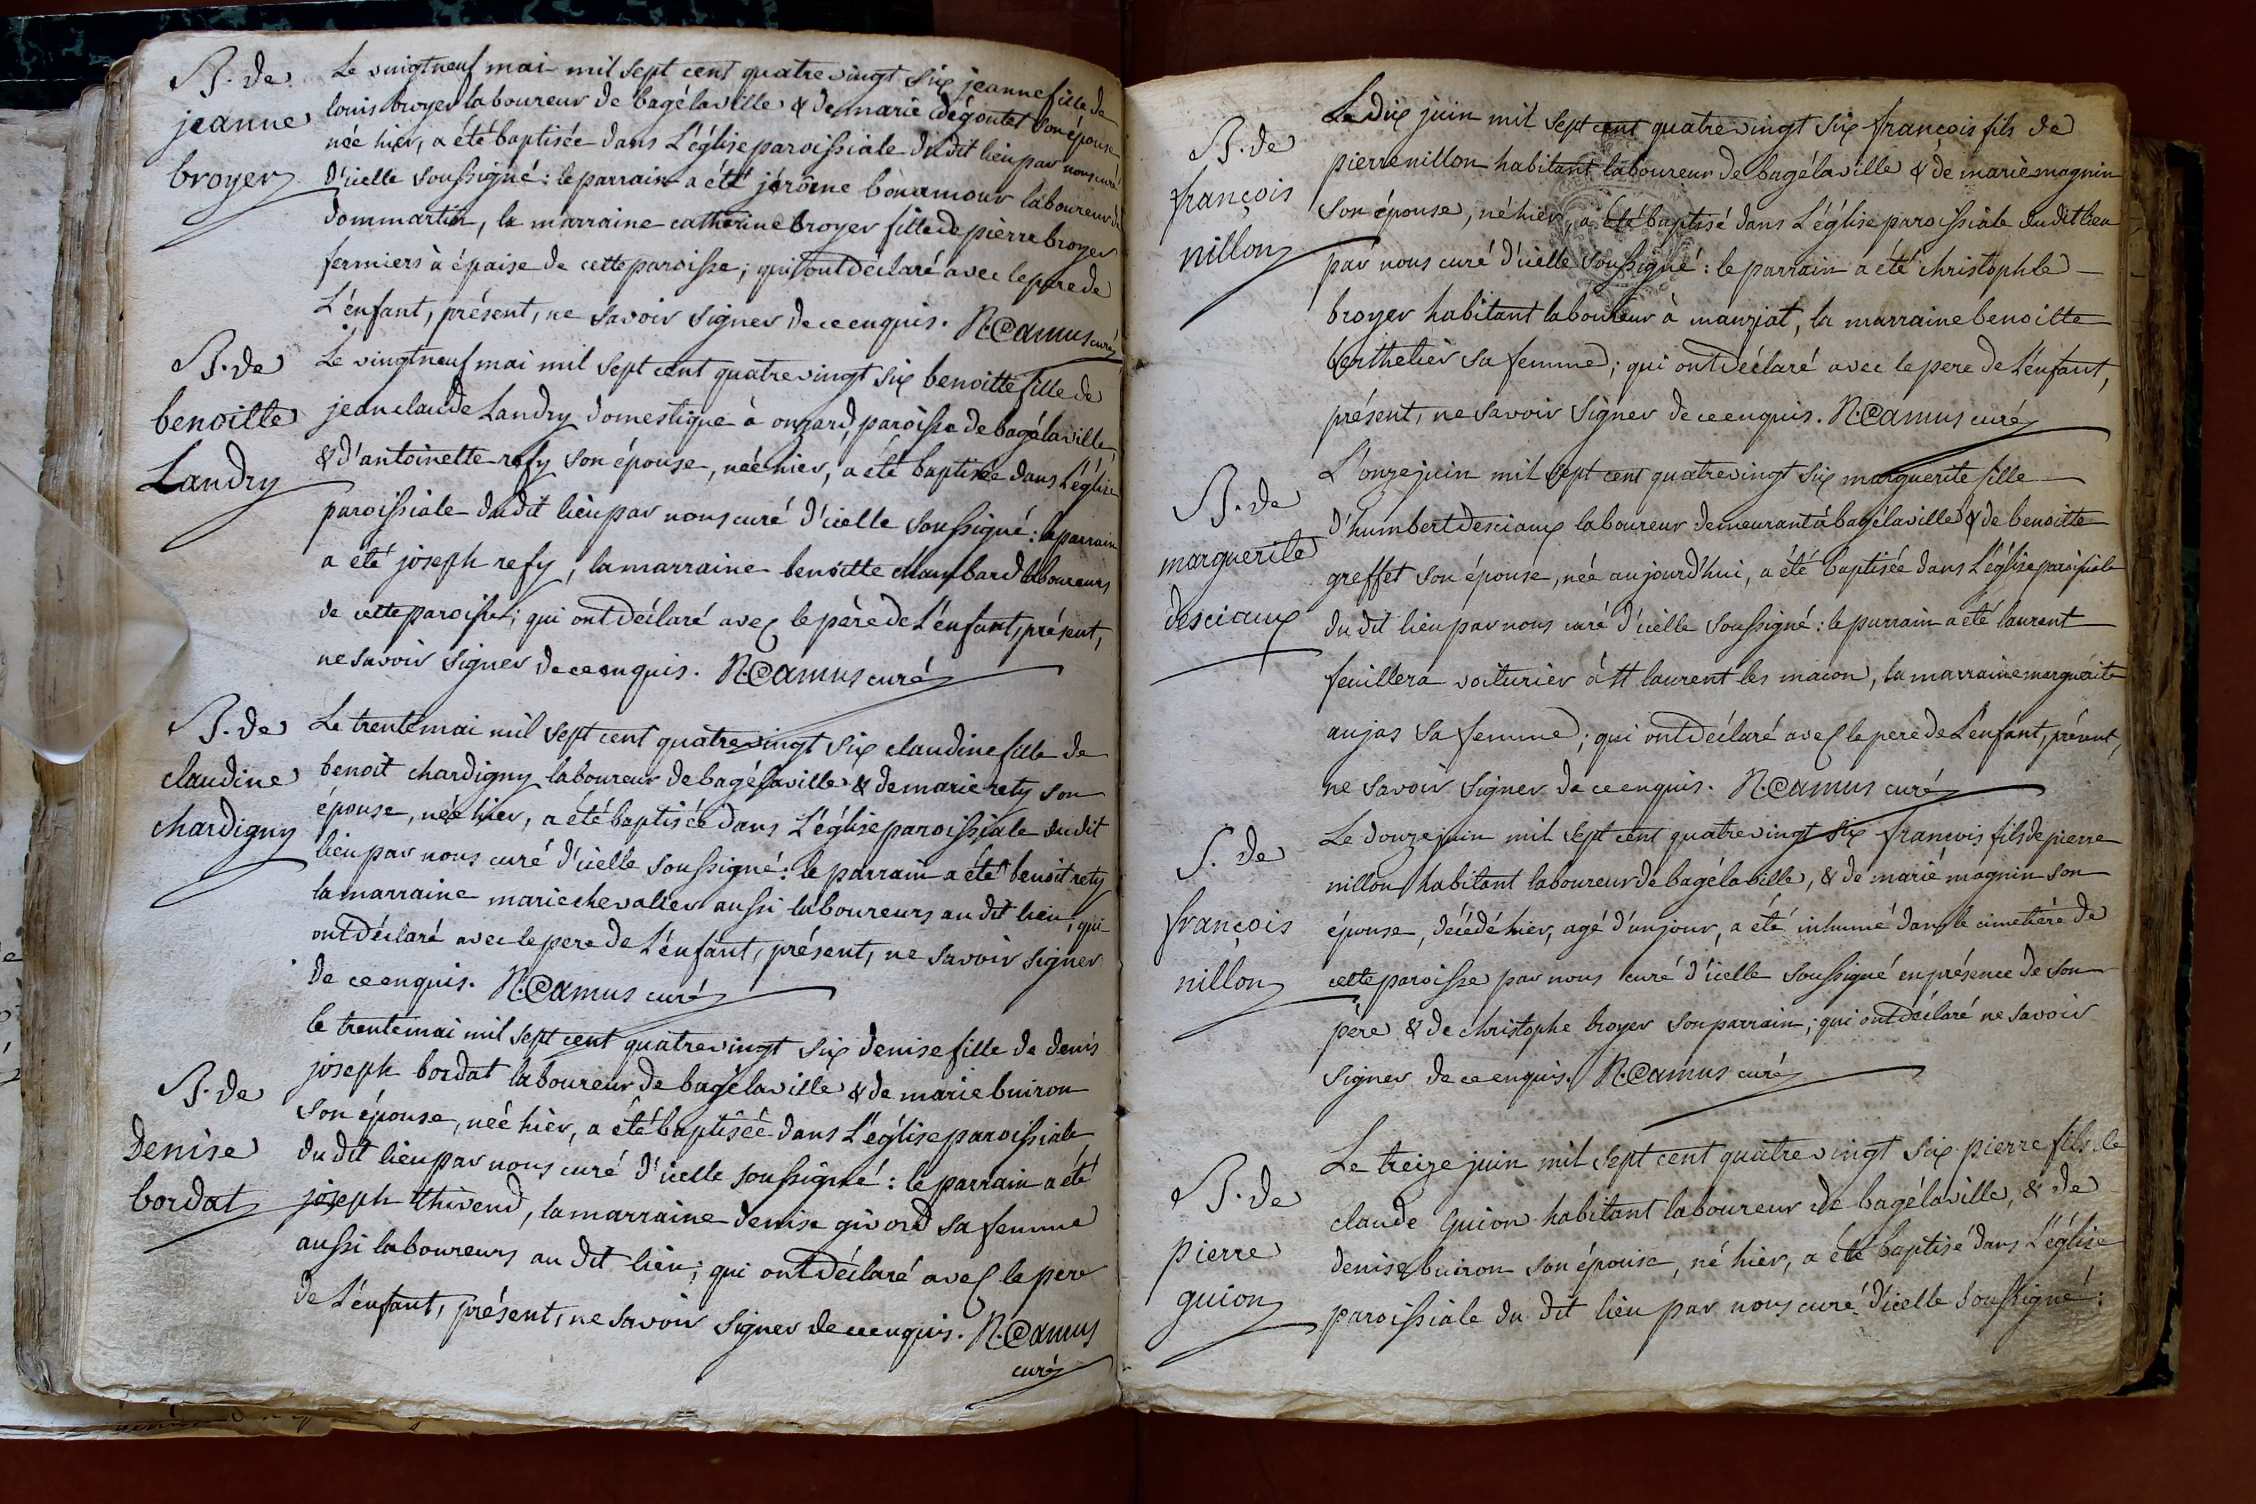 B. de
jeanne
broyer
Le vingt neuf mai mil sept cent quatre vingt six jeanne fille de
louis broyer laboureur de bagé la ville & de marie dégoutet son épouse
née hier, a été baptisée dans L'église paroissiale du dit lieu par nous curé
d'icelle soussigné : le parrain a été jérôme bonamour laboureur à
dommartin, la marraine catherine broyer fille de pierre broyer
fermiers à épaise de cette paroisse ; qui ont déclaré avec le pere de
L'énfant, présent, ne savoir signer de ce enquis. N. Camus curé
B. de
benoitte
Landry
Le vingt neuf mai mil sept cent quatre vingt six benoitte fille de
jean claude Landry domestique à onzard, paroisse de bagé la ville,
& d'antoinette refy son épouse, née hier, a été baptisée dans L'église
paroissiale du dit lieu par nous curé d'icelle soussigné : le parrain
a été joseph refy, la marraine benoitte chambard laboureurs
de cette paroisse ; qui ont déclaré avec le père de L'énfant, présent,
ne savoir signer de ce enquis. N. Camus curé
B. de
claudine
chardigny
Le trente mai mil sept cent quatre vingt six claudine fille de
benoit chardigny laboureur de bagé la ville & de marie rety son
épouse, née hier, a été baptisée dans L'église paroissiale du dit
lieu par nous curé d'icelle soussigné : le parrain a été benoit rety
la marraine marie chevalier aussi laboureurs au dit lieu, qui
ont déclaré avec le pere de L'énfant, présent, ne savoir signer
de ce enquis. N. Camus curé
B. de
denise
bordat
le trente mai mil sept cent quatre vingt six denise fille de denis
joseph bordat laboureur de bagé la ville & de marie buiron
son épouse, née hier, a été baptisée dans L'église paroissiale
du dit lieu par nous curé d'icelle soussigné : le parrain a été
joseph thivend, la marraine denise givord sa femme
aussi laboureurs au dit lieu ; qui ont déclaré avec le pere
de L'énfant, présent, ne savoir signer de ce enquis. N. Camus
curé
B. de
françois
nillon
Le dix juin mil sept cent quatre vingt six françois fils de
pierre nillon habitant laboureur de bagé la ville & de marie magnin
son épouse, né hier, a été baptisé dans L'église paroissiale du dit lieu
par nous curé d'icelle soussigné : le parrain a été christophle
broyer habitant laboureur à manziat, la marraine benoitte
berthelier sa femme ; qui ont déclaré avec le pere de L'énfant,
présent, ne savoir signer de ce enquis. N. Camus curé
B. de
marguerite
desciaux
L'onze juin mil sept cent quatre vingt six marguerite fille
d'humbert desciaux laboureur demeurant à bagé la ville & de benoitte
greffet son épouse, née aujourd'hui, a été baptisée dans L'église paroissiale
du dit lieu par nous curé d'icelle soussigné : le parrain a été laurent
feuillera voiturier à st laurent les macon, la marraine marguerite
aujas sa femme ; qui ont déclaré avec le pere de L'énfant, présent,
ne savoir signer de ce enquis. N. Camus curé
S. de
françois
nillon
Le douze juin mil sept cent quatre vingt six francois fils de pierre
nillon habitant laboureur de bagé la ville, & de marie magnin son
épouse, décédé hier, agé d'un jour, a été inhumé dans le cimetière de
cette paroisse par nous curé d'icelle soussigné en présence de son
père & de christophe broyer son parrain ; qui ont déclaré ne savoir
signer de ce enquis. N. Camus curé
B. de
pierre
guion
Le treize juin mil sept cent quatre vingt six pierre fils de
claude guion habitant laboureur de bagé la ville, & de
denise buiron son épouse, né hier, a été baptisé dans L'église
paroissiale du dit lieu par nous curé d'icelle soussigné :